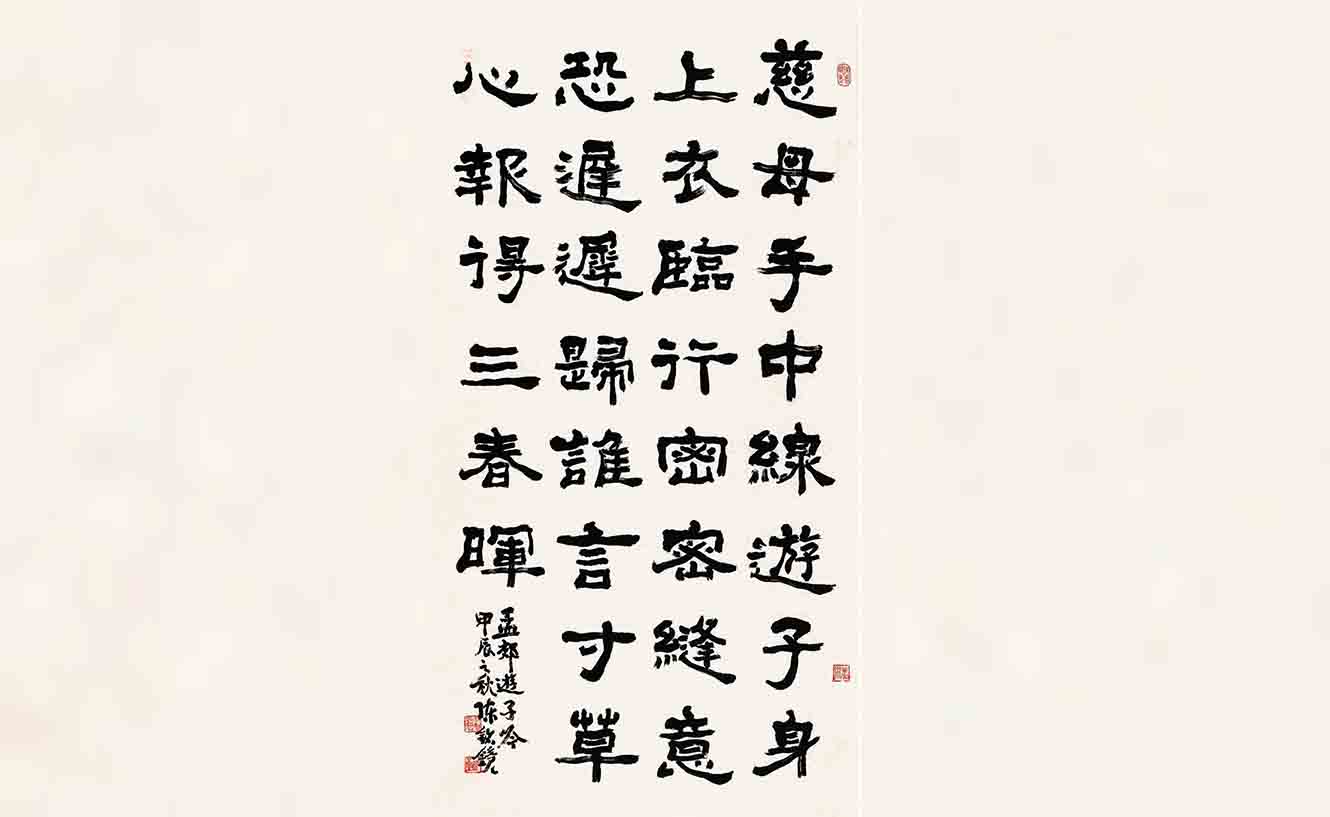 慈母手中線遊子身
上衣臨行密密縫意
恐遲遲歸誰言寸草
心報得三春暉
孟郊遊子吟
甲辰之秋陈秋鏡